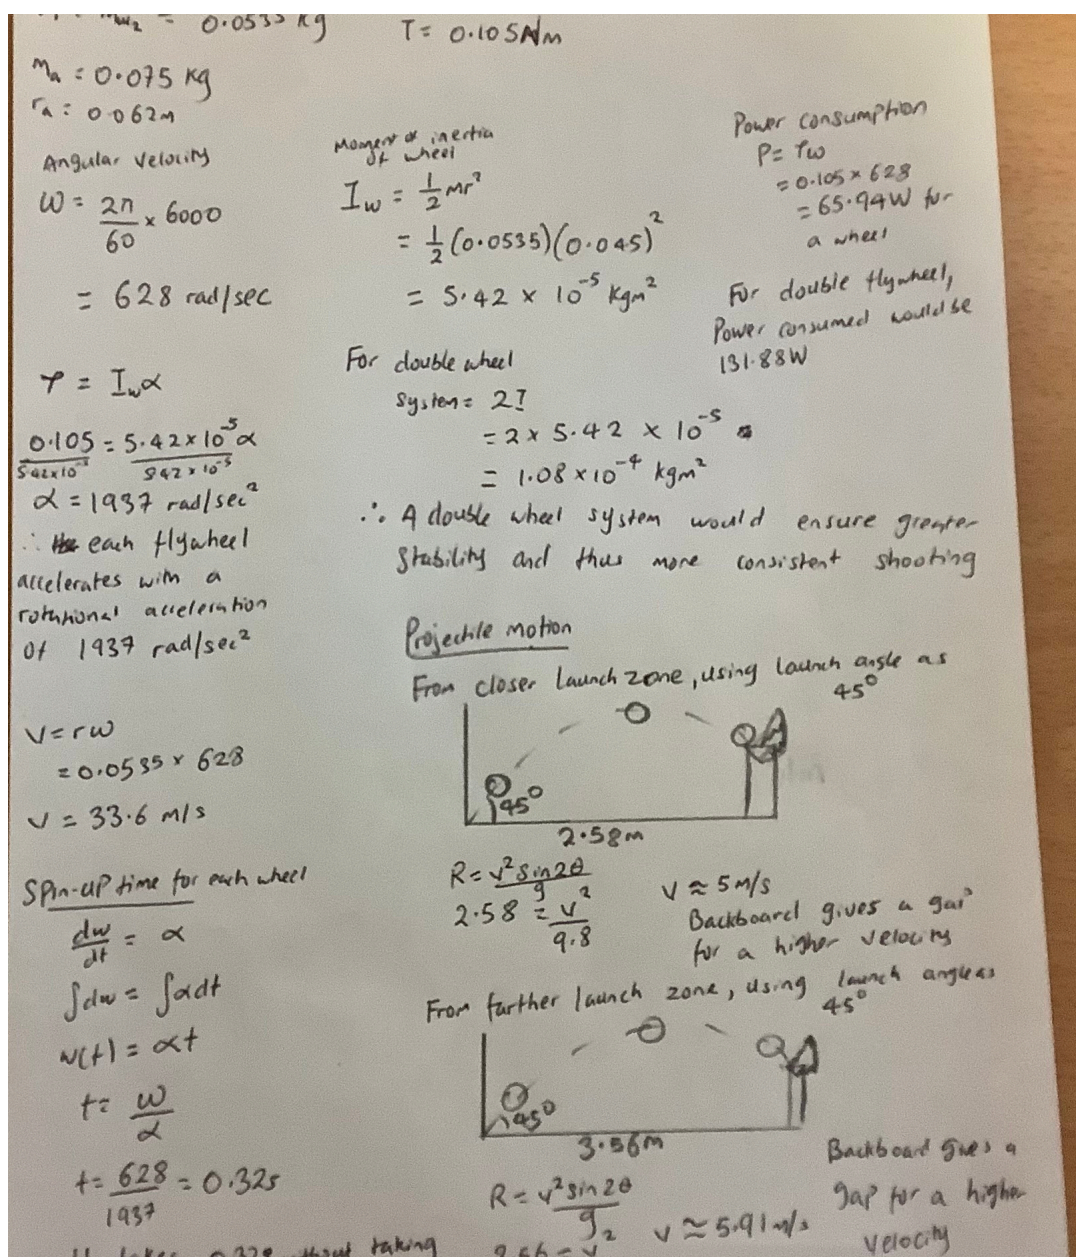 = 0.0535 kg
T = 0.105Nm
Ma = 0.075 kg
ra = 0.062m
Angular Velocity
ω = 2π/60 × 6000
= 628 rad/sec
τ = Iwα
0.105/5.42×10⁻⁵ = 5.42×10⁻⁵α/5.42×10⁻⁵
α = 1937 rad/sec²
∴ each flywheel
accelerates with a
rotational acceleration
of 1937 rad/sec²
V = rω
= 0.0535 × 628
V = 33.6 m/s
Spin-up time for each wheel
dw/dt = α
∫dw = ∫αdt
w(t) = αt
t = ω/α
t = 628/1937 = 0.32s
Moment of inertia
of wheel
Iw = 1/2 mr²
= 1/2 (0.0535)(0.045)²
= 5.42 × 10⁻⁵ kgm²
For double wheel
System = 2I
= 2 × 5.42 × 10⁻⁵
= 1.08 × 10⁻⁴ kgm²
∴ A double wheel system would ensure greater
Stability and thus more consistent shooting
Power consumption
P = τω
= 0.105 × 628
= 65.94W for
a wheel
For double flywheel,
Power consumed would be
131.88W
Projectile motion
From closer launch zone, using launch angle as
45°
45°
2.58m
R = v² sin2θ/g
2.58 = v²/9.8
V ≈ 5m/s
Backboard gives a gap
for a higher velocity
From farther launch zone, using launch angle as
45°
45°
3.56m
R = v² sin2θ/g
V ≈ 5.91m/s
Backboard gives a
gap for a higher
velocity
taking